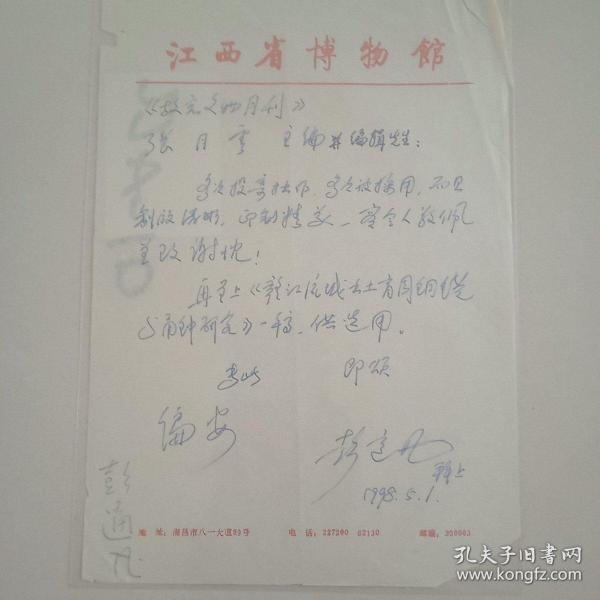 江西省博物館
《故宫文物月刊》
张月云 主编并编辑先生：
多次投寄拙作，多次被採用，而且
制版清晰，印刷精美，实令人敬佩
并致谢忱！
再呈上《赣江流域出土商周铜铙
与甬钟研究》一稿，供选用。
专此 即颂
编安
彭适凡
拜上
1998.5.1.
彭适凡
地 址：南昌市八一大道99号 电 话：227200 62130 邮编：
孔夫子旧书网
www.kongfz.com